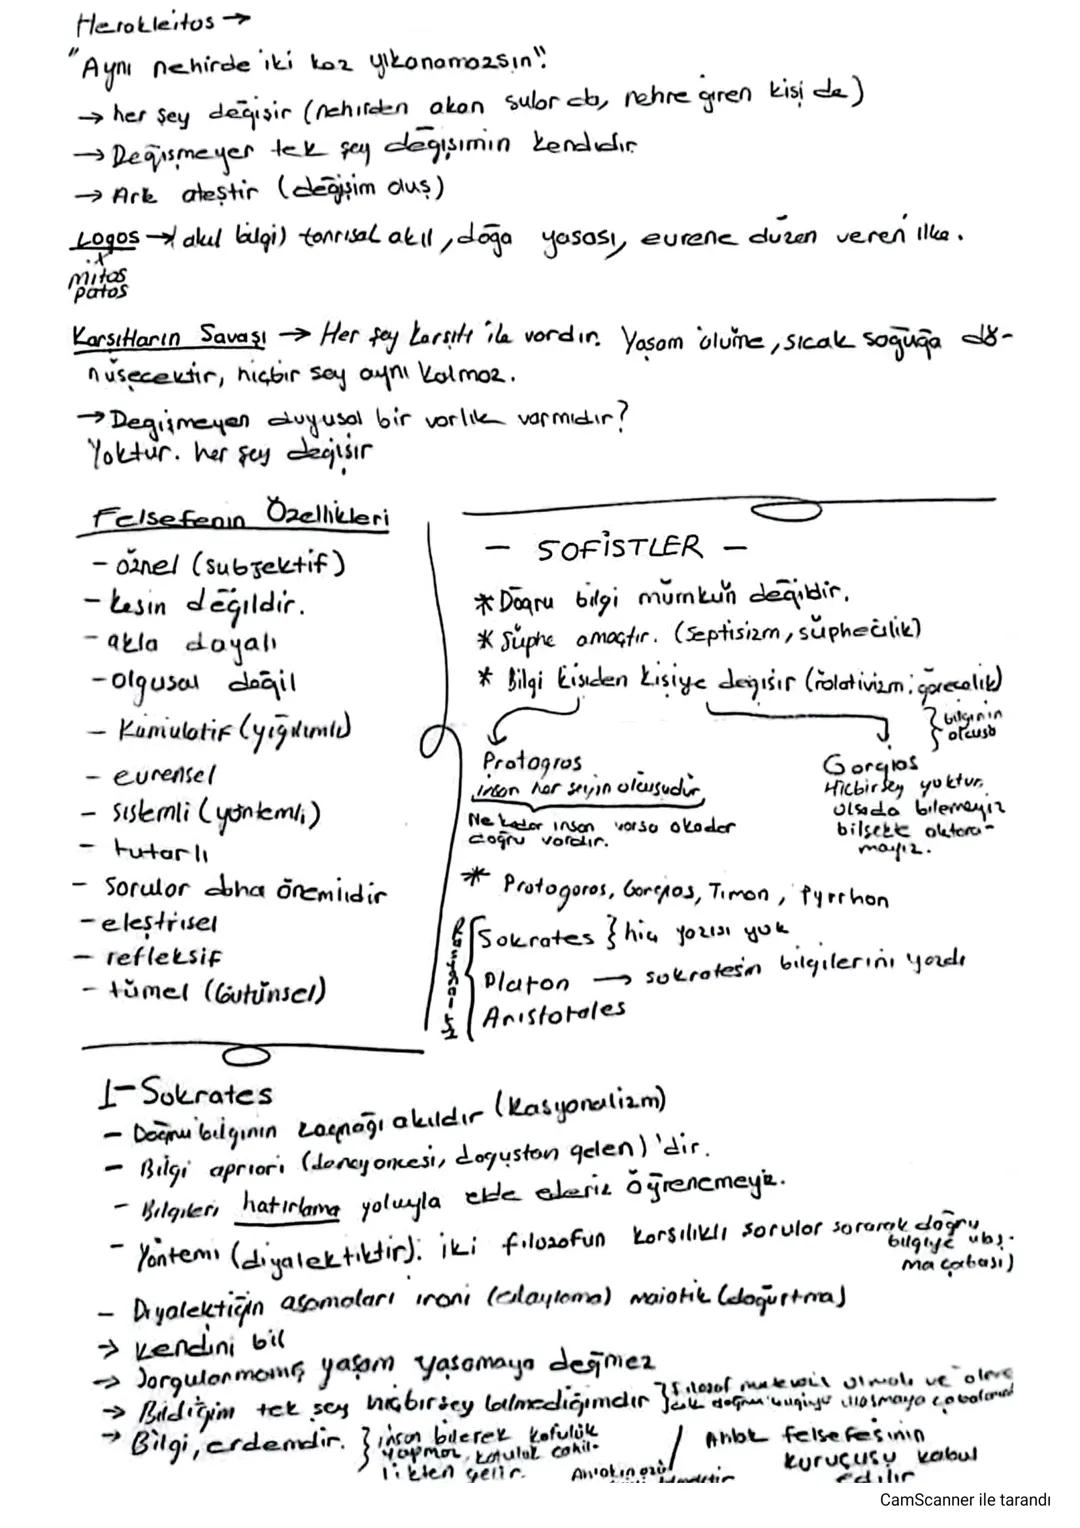 Herakleitos →
"Aynı nehirde iki kez yıkanamazsın"
→ her şey değişir (nehirden akan sular da, nehre giren kişi de)
→ Değişmeyen tek şey değişimin kendidir
→ Ark ateştir (değişim oluş)
Logos → akıl bilgi) tanrısal akıl, doğa yasası, evrene düzen veren ilke.
x
mitos
patos
Karşıtların Savaşı → Her şey karşıtı ile vardır. Yaşam ölüme, sıcak soğuğa dö-
nüşecektir, hiçbir şey aynı kalmaz.
→ Değişmeyen duyusal bir varlık varmıdır?
Yoktur. her şey değişir
Felsefenin Özellikleri
- öznel (subjektif)
- kesin değildir.
- akla dayalı
- olgusal değil
- Kümülatif (yığılımlı)
- evrensel
- sistemli (yöntemli)
- tutarlı
- sorular daha önemlidir
- eleştirisel
- refleksif
- tümel (bütünsel)
- SOFİSTLER -
* Doğru bilgi mümkün değildir.
* Şüphe amaçtır. (septisizm, şüphecilik)
* Bilgi kişiden kişiye değişir (rölativizm: görecelik)
} bilginin
ölçüsü
Protogros
insan her şeyin ölçüsüdür,
Ne kadar insan varsa o kadar
doğru vardır.
Gorgios
Hiçbir şey yoktur,
olsada bilemeyiz
bilsekte aktara-
mayız.
* Protogoros, Gorgios, Timon, Pyrrhon
Sokrates } hiç yazısı yok
Platon → sokratesin bilgilerini yazdı
Aristotales
I- Sokrates
- Doğru bilginin kaynağı akıldır (Rasyonalizm)
- Bilgi apriori (deney öncesi, doğuştan gelen)'dir.
- Bilgileri hatırlama yoluyla elde ederiz öğrenemeyiz.
- Yöntemi (diyalektiktir): iki filozofun karşılıklı sorular sorarak doğru
bilgiye ulaş-
ma çabası)
- Diyalektiğin aşamaları ironi (alaylama) maiotik (doğurtma)
→ Kendini bil
→ Sorgulanmamış yaşam yaşamaya değmez
→ Bildiğim tek şey hiçbirşey bilmediğimdir } filozof
→ Bilgi, erdemdir. } insan bilerek kötülük
yapmaz, kötülük cahil-
likten gelir.
/ Ahlak felsefesinin
kurucusu kabul
edilir
CamScanner ile tarandı